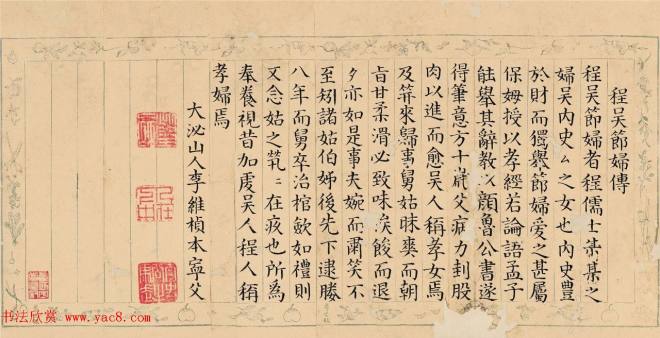 程吳節婦傳
程吳節婦者程儒士某某之
婦吳內史厶之女也內史豊
於財而獨舉節婦愛之甚屬
保姆授以孝經若論語孟子
能舉其辭教以顏魯公書遂
得筆意方十歲父疾力刲股
肉以進而愈吳人稱孝女焉
及笄來歸事舅姑昧爽而朝
旨甘柔滑必致味矣餕而退
夕亦如是事夫婉而肅笑不
至矧諸姑伯姊後先下逮勝
八年而舅卒治棺歛如禮則
又念姑之煢煢在疚也所爲
奉養視昔加虔吳人程人稱
孝婦焉
大泌山人李維楨本寧父
书法欣赏 www.yac8.com